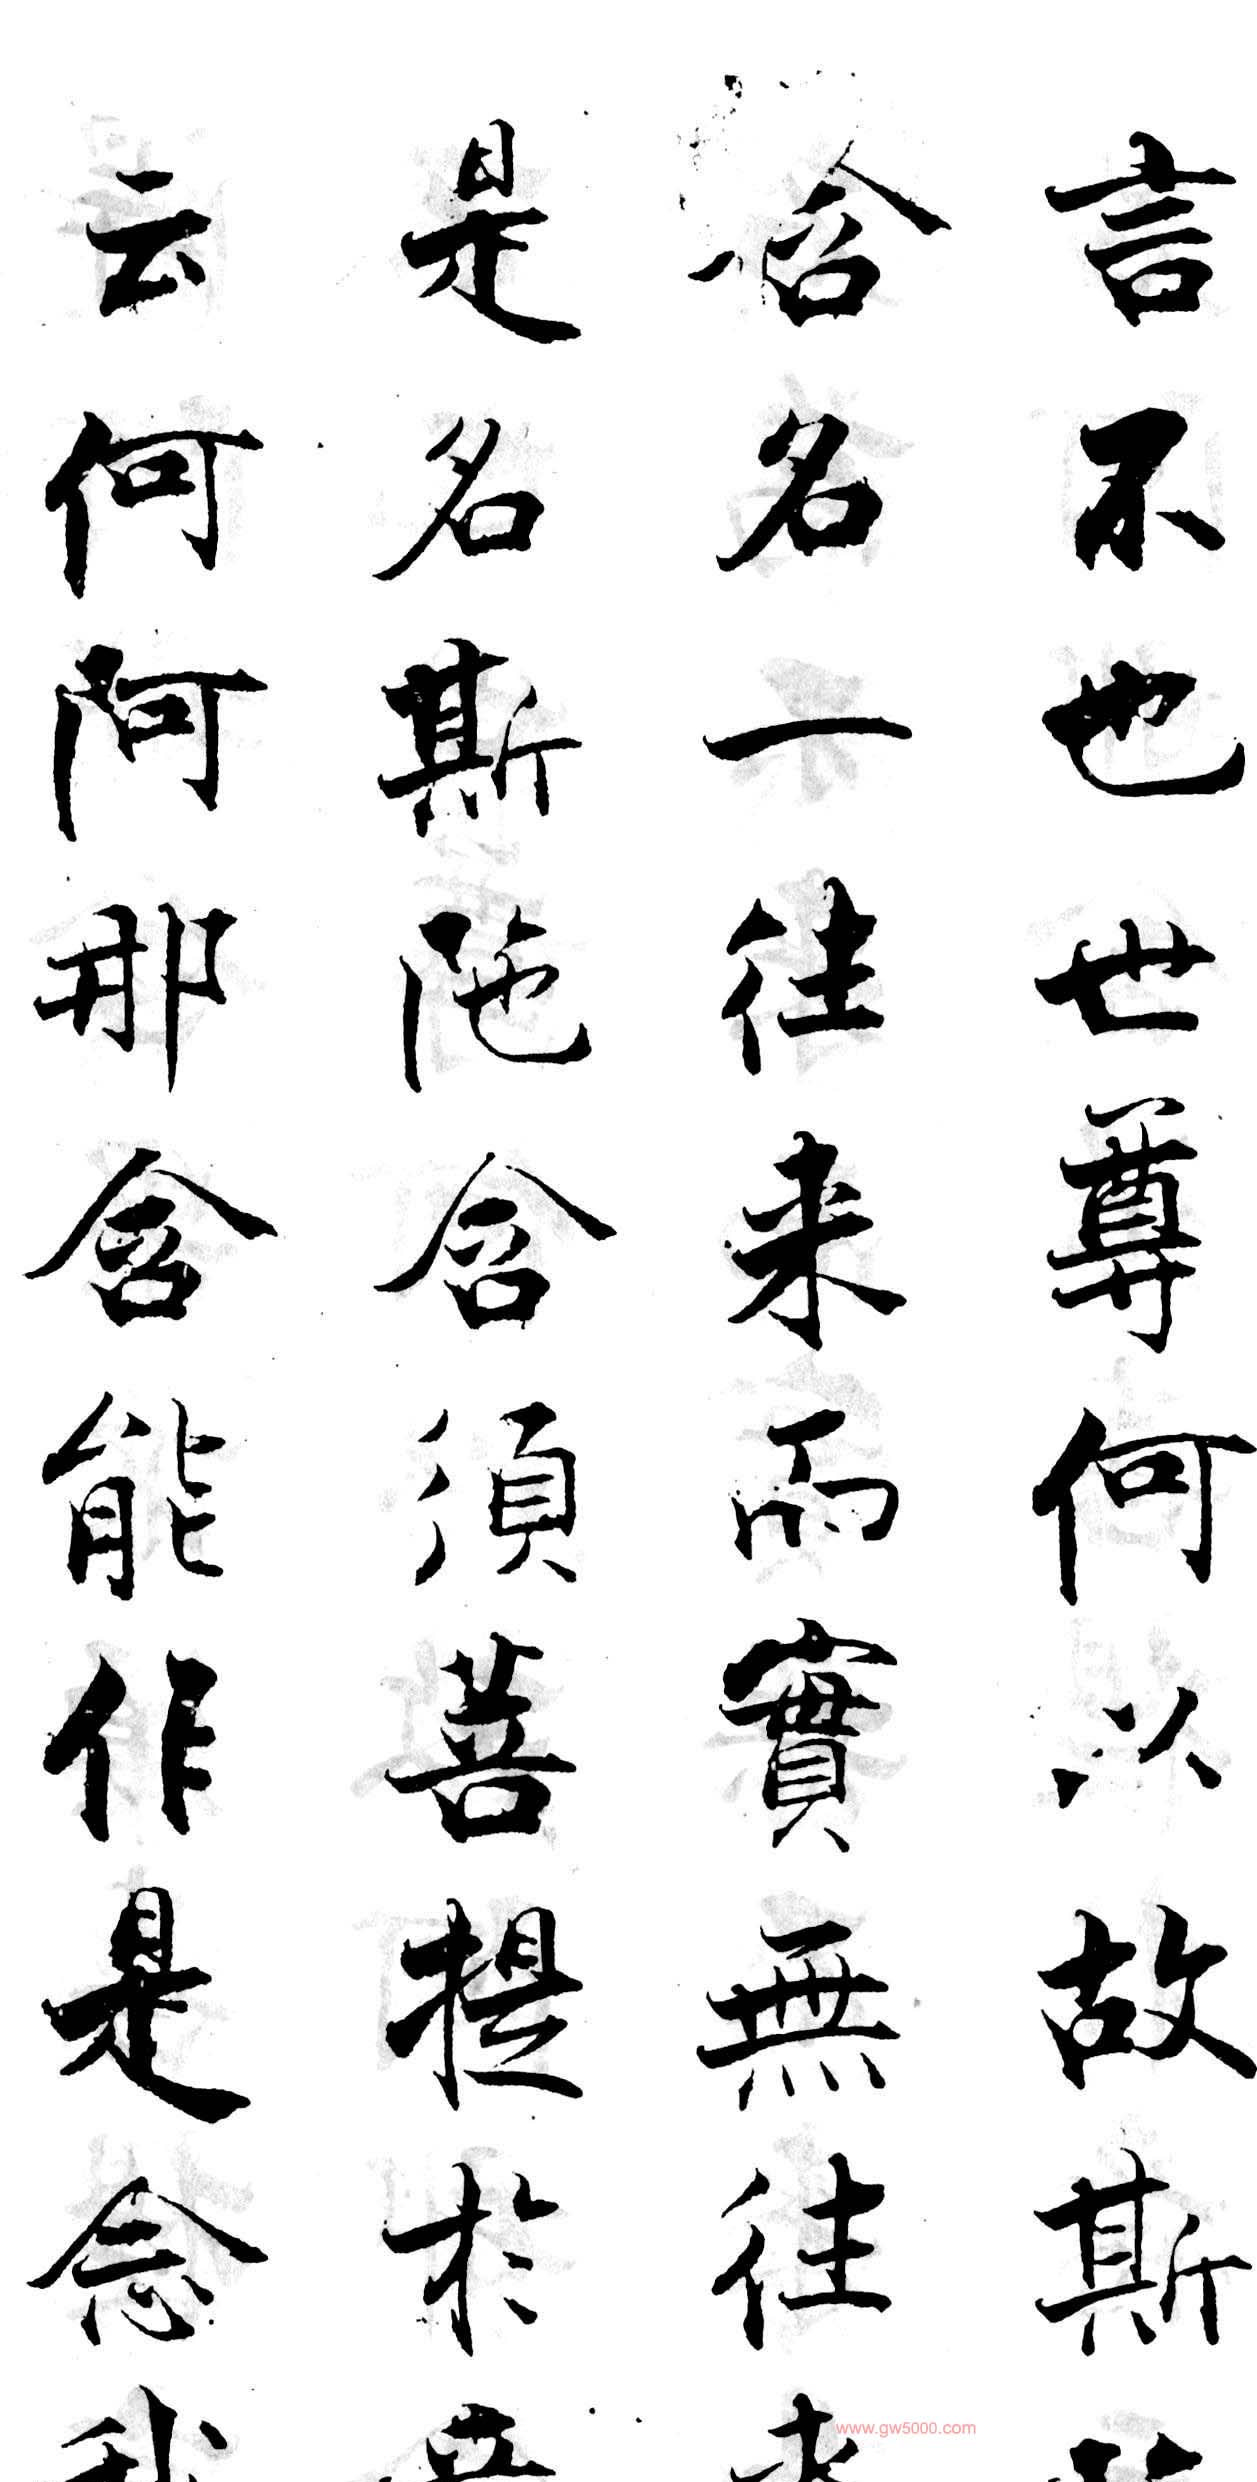 言不也世尊何以故斯
含名一往来而實無往来
是名斯陁含須菩提於意
云何阿那含能作是念我
www.gw5000.com